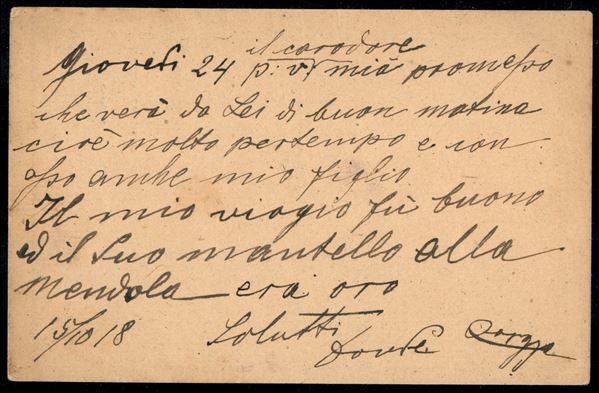 il caradore
Giovedi 24 p. v. mia promesso
che verà da Lei di buon matina
cioè molto pertempo e con
esso anche mio figlio
Il mio viagio fù buono
ed il Suo mantello alla
Mendola era oro
15/10 18 Salutti